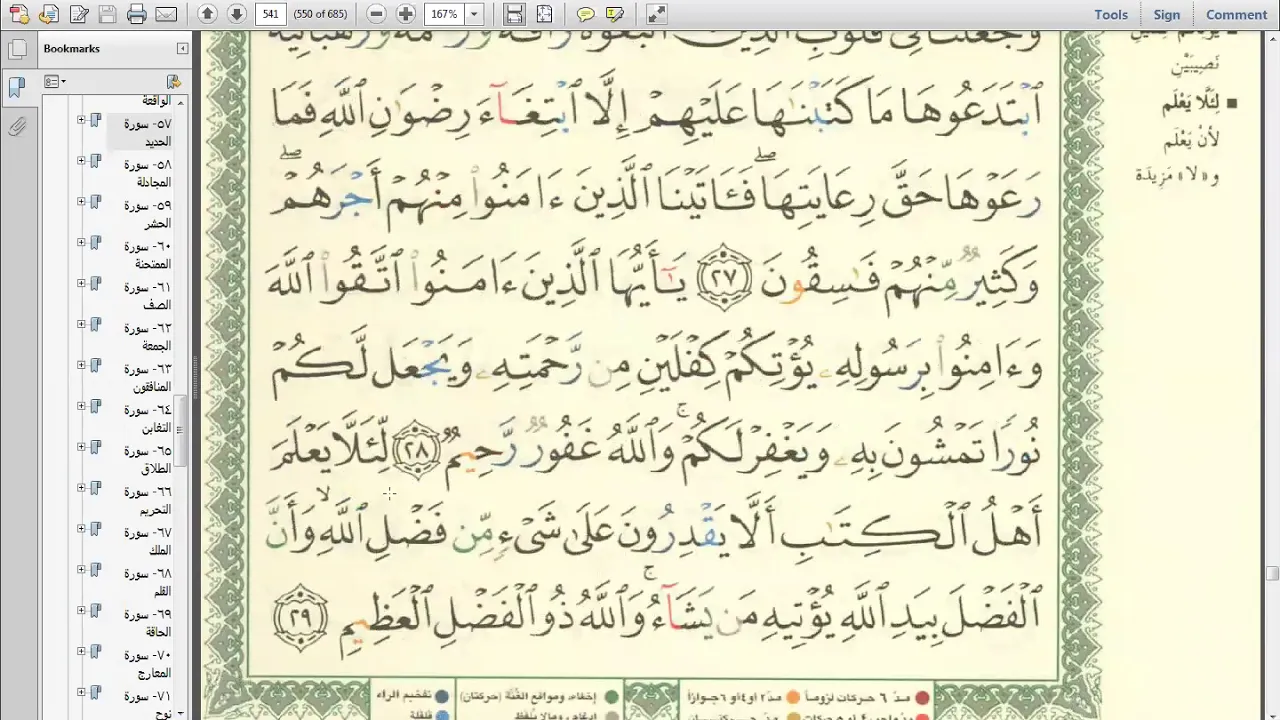 541
(550 of 685)
167%
Tools
Sign
Comment
Bookmarks
الواقعة
٥٧- سورة
الحديد
٥٨- سورة
المجادلة
٥٩- سورة
الحشر
٦٠- سورة
الممتحنة
٦١- سورة
الصف
٦٢- سورة
الجمعة
٦٣- سورة
المنافقون
٦٤- سورة
التغابن
٦٥- سورة
الطلاق
٦٦- سورة
التحريم
٦٧- سورة
الملك
٦٨- سورة
القلم
٦٩- سورة
الحاقة
٧٠- سورة
المعارج
٧١- سورة
نوح
ٱبْتَدَعُوهَا مَا كَتَبْنَٰهَا عَلَيْهِمْ إِلَّا ٱبْتِغَآءَ رِضْوَٰنِ ٱللَّهِ فَمَا
رَعَوْهَا حَقَّ رِعَايَتِهَا ۖ فَـَٔاتَيْنَا ٱلَّذِينَ ءَامَنُوا۟ مِنْهُمْ أَجْرَهُمْ ۖ
وَكَثِيرٌ مِّنْهُمْ فَٰسِقُونَ ٢٧ يَٰٓأَيُّهَا ٱلَّذِينَ ءَامَنُوا۟ ٱتَّقُوا۟ ٱللَّهَ
وَءَامِنُوا۟ بِرَسُولِهِۦ يُؤْتِكُمْ كِفْلَيْنِ مِن رَّحْمَتِهِۦ وَيَجْعَل لَّكُمْ
نُورًا تَمْشُونَ بِهِۦ وَيَغْفِرْ لَكُمْ ۚ وَٱللَّهُ غَفُورٌ رَّحِيمٌ ٢٨ لِّئَلَّا يَعْلَمَ
أَهْلُ ٱلْكِتَٰبِ أَلَّا يَقْدِرُونَ عَلَىٰ شَىْءٍ مِّن فَضْلِ ٱللَّهِ ۙ وَأَنَّ
ٱلْفَضْلَ بِيَدِ ٱللَّهِ يُؤْتِيهِ مَن يَشَآءُ ۚ وَٱللَّهُ ذُو ٱلْفَضْلِ ٱلْعَظِيمِ ٢٩
نَصِيبَيْنِ
■ لِئَلَّا يَعْلَم
لأنْ يَعْلَم
و «لا» مَزِيدَة
مدّ ٦ حركات لزوماً
مدّ ٢ أو ٤ أو ٦ جوازاً
إخفاء، ومواقع الغُنَّة (حركتان)
تفخيم الراء
قلقلة